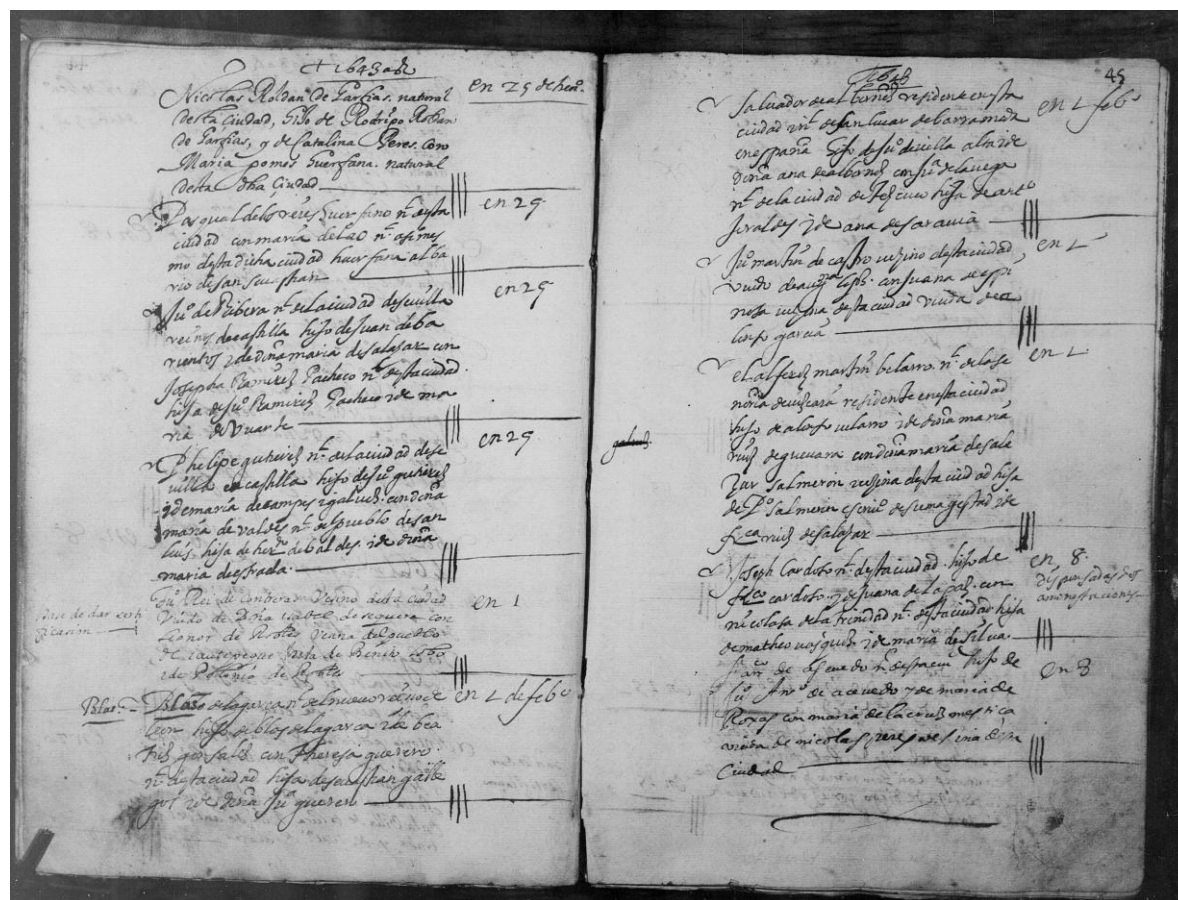 1643 as
Nicolas Roldan de Garfias. natural
desta Ciudad, hijo de Rodrigo Roldan
de Garfias, y de Catalina Peres. con
Maria gomes huerfana. natural
desta dha Ciudad
en 25 de hen.º
Pasqual delos reies huerfano nl desta
ciudad con maria de la O nl asimes
mo desta dicha ciudad huerfana al ba
rio de san
en 29
Juº de Ribera nl de la ciudad de sevilla
reinos de castilla hijo de Juan de ba
rientos i de doña maria de salazar con
Josepha Ramires Pacheco nl desta ciudad.
hija de Juº Ramires Pacheco i de ma
ria de Uuarte
en 29
Phelipe gutieres nl de la ciudad de se
uilla en castilla hijo de Juº gutieres
i de maria de campos i galues. con doña
maria de valdes nl del pueblo de san
luis hija de herdo de baldes. i de doña
maria de estrada.
en 29
Juº Rei de vesino desta ciudad
Viudo de Dña isabel de con
Leonor de Robles Veçina del pueblo
de
i de de Robles
en 1
Blas
Blas de la garca nl del nueuo reino de
leon hijo de blas de la garca i de bea
tris gonsales con Theresa guerero.
nl desta ciudad hija de sebastian
i de doña Juª guerero
en 1 de febº
1643
45
Saluador de albornos residente en esta
ciudad nl de san lucar de barrameda
en españa hijo de Juº de villa alta i de
doña ana de albornos con Juª de la vega
nl de la ciudad de tescuco hija de antº
Jiraldes i de ana de sarauia
en 1 febº
Juº martin de castro vezino desta ciudad
viudo de con Juana de espi
nosa vezina desta ciudad viuda de
garcia
en 1
galues
el alferes martin belarro. nl de la se
noria de viscaia residente en esta ciudad
hijo de alonso uelarro i de doña maria
ruis de gueuara con doña maria de sala
zar salmeron vezina desta ciudad hija
de Pº salmeron escriuº de su magestad i de
frca ruis de salazar.
en 1
Joseph Cardoso nl desta ciudad. hijo de
frco cardoso. y de Juana de la paz. con
nicolasa de la trinidad nl desta ciudad hija
de matheo uasques i de maria de silua.
en 8.
dispensados dos
amonestaciones
franco de aseuedo nl hijo de
Juº de aceuedo y de maria de
Roxas con maria de la crus mestica
viuda de nicolas peres vesina desta
Ciudad
en 8